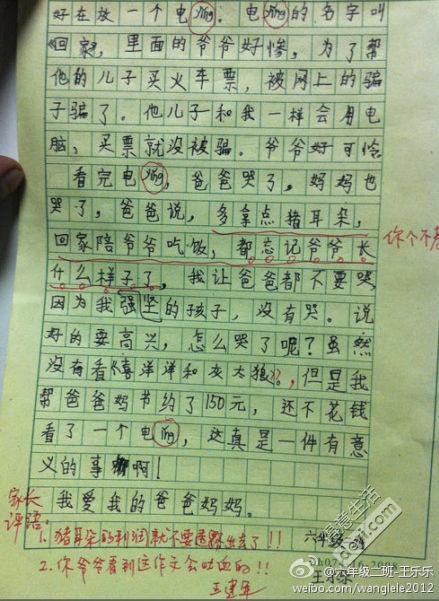 好在放一个电ying. 电ying的名字叫
回家, 里面的爷爷好惨, 为了帮
他的儿子买火车票, 被网上的骗
子骗了。他儿子和我一样会用电
脑, 买票就没被骗。爷爷好可怜
看完电ying, 爸爸哭了, 妈妈也
哭了, 爸爸说, 多拿点猪耳朵,
回家陪爷爷吃饭, 都忘记爷爷长
什么样子了, 我让爸爸都不要哭,
因为我强坚的孩子, 没有哭。说
好的要高兴, 怎么哭了呢? 虽然
没有看《喜洋洋和灰太狼》, 但是我
帮爸爸妈节约了150元, 还不花钱
看了一个电ying, 这真是一件有意
义的事啊!
我爱我的爸爸妈妈。
你个不孝
家长
评语:
1. 猪耳朵的利润就不要透露出去了!!
2. 你爷爷看到这作文会吐血的!!
王建军
六年级二班
王乐乐
@六年级二班-王乐乐
weibo.com/wanglele2012